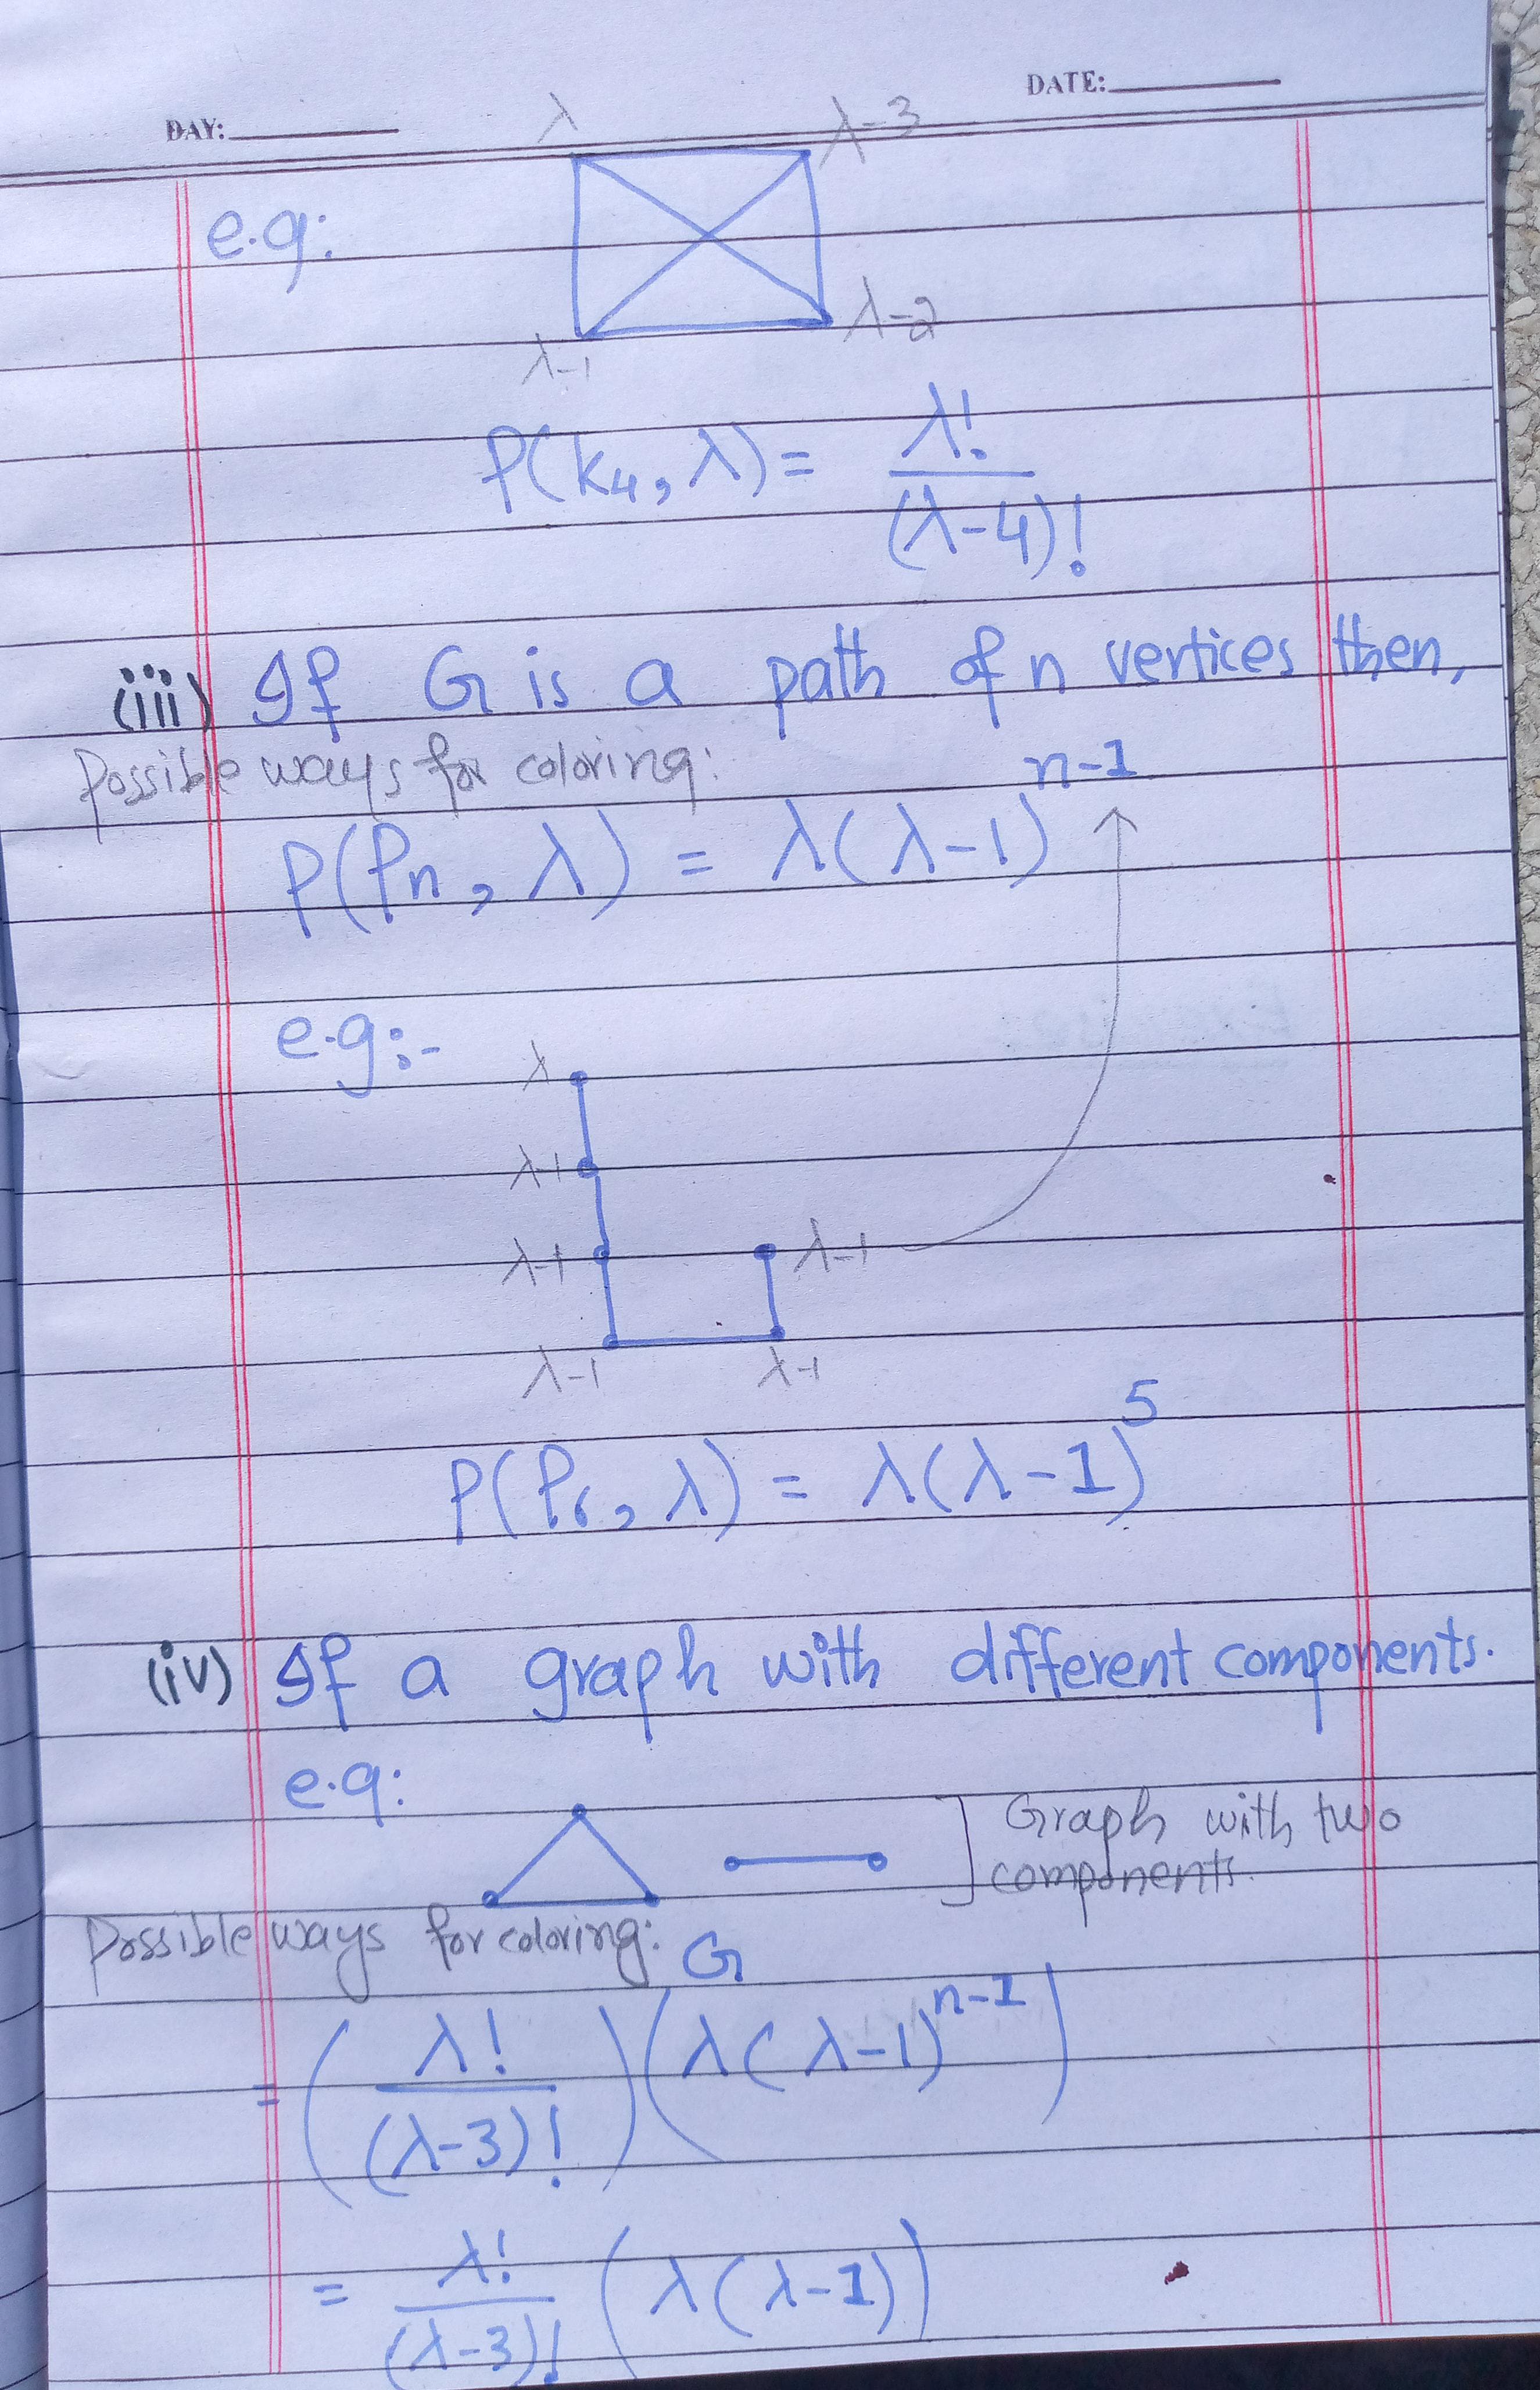 DAY: DATE:
λ λ-3
e.g:
λ-1 λ-2
P(K₄, λ) = λ! / (λ-4)!
(iii) If G is a path of n vertices then,
Possible ways for coloring:
P(Pn, λ) = λ(λ-1)^n-1
e.g:-
λ
λ-1
λ-1 λ-1
λ-1 λ-1
P(P₆, λ) = λ(λ-1)^5
(iv) If a graph with different components.
e.g:
Graph with two
components.
Possible ways for coloring: G
= (λ! / (λ-3)!) (λ(λ-1)^n-1)
= λ! / (λ-3)! (λ(λ-1))